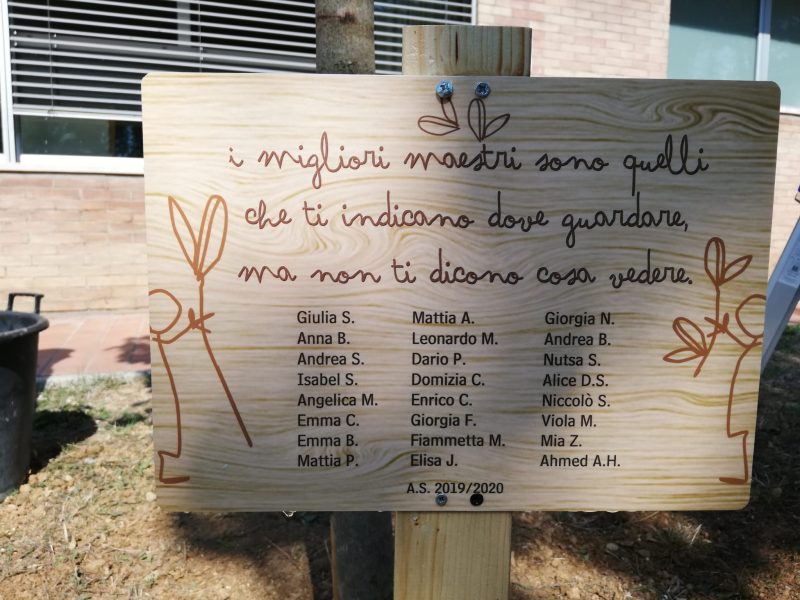 i migliori maestri sono quelli
che ti indicano dove guardare,
ma non ti dicono cosa vedere.
Giulia S.
Anna B.
Andrea S.
Isabel S.
Angelica M.
Emma C.
Emma B.
Mattia P.
Mattia A.
Leonardo M.
Dario P.
Domizia C.
Enrico C.
Giorgia F.
Fiammetta M.
Elisa J.
Giorgia N.
Andrea B.
Nutsa S.
Alice D.S.
Niccolò S.
Viola M.
Mia Z.
Ahmed A.H.
A.S. 2019/2020